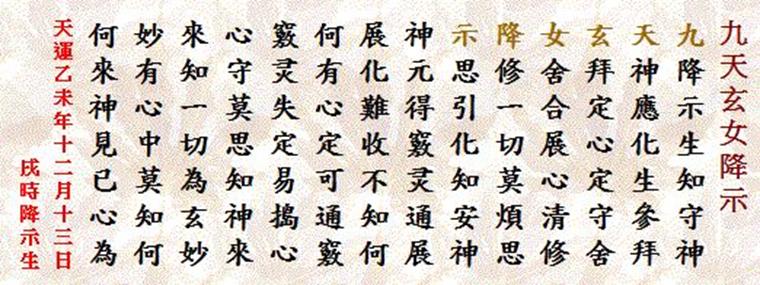 九天玄女降示
九降示生知守神
天神應化生參拜
玄拜定心定守舍
女舍合展心清修
降修一切莫煩思
示思引化知安神
神元得竅灵通展
展化難收不知何
何有心定可通竅
竅灵失定易搗心
心守莫思知神來
來知一切為玄妙
妙有心中莫知何
何來神見已心為
天運乙未年十二月十三日
戌時降示生